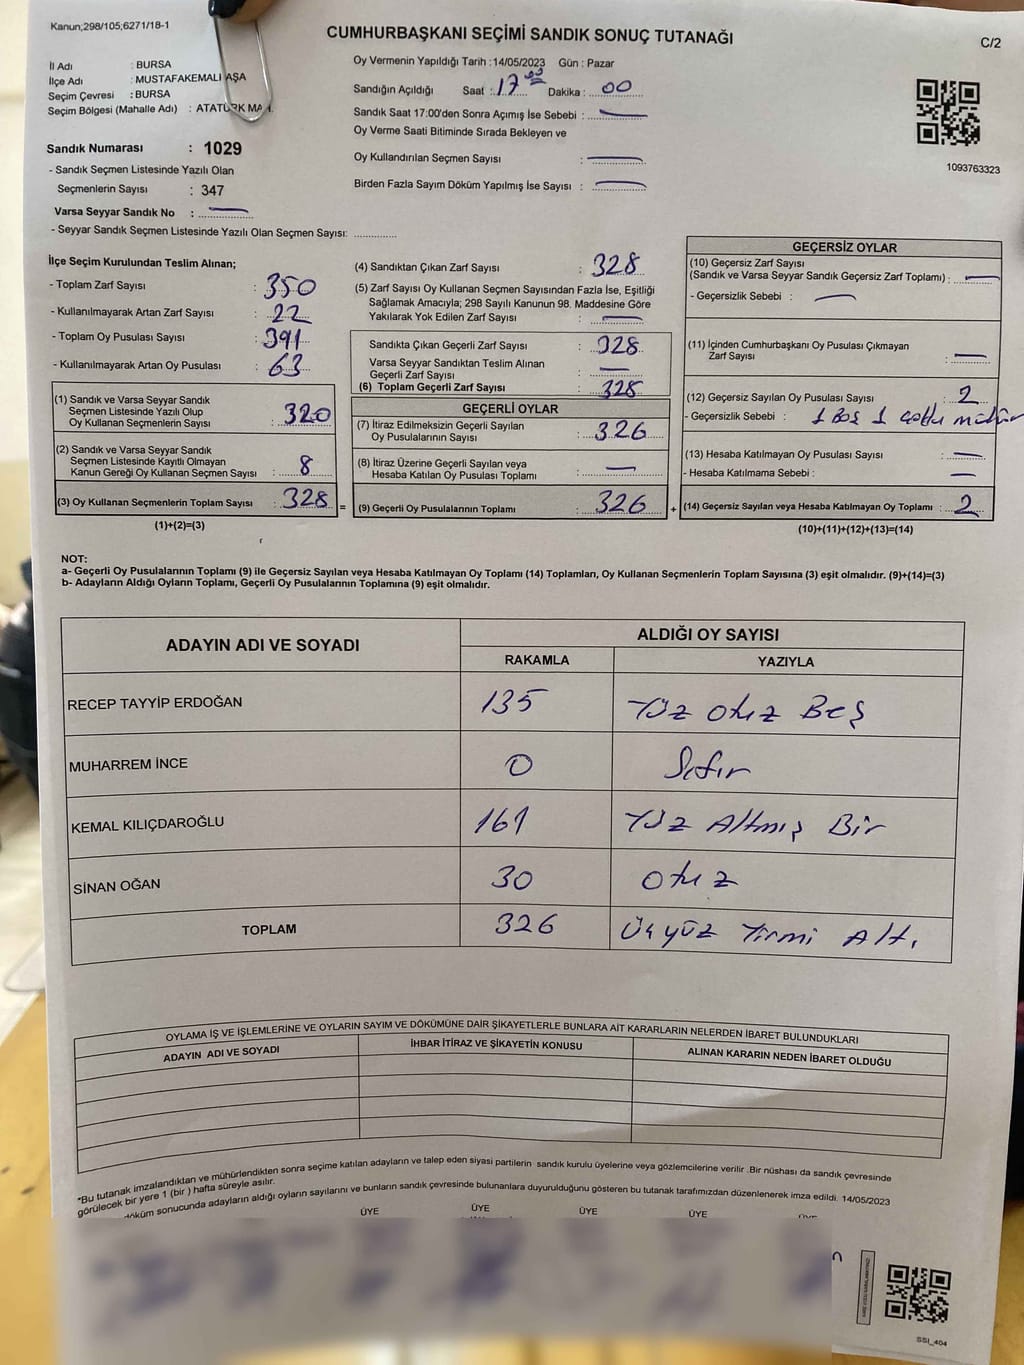 Kanun;298/105;6271/18-1
CUMHURBAŞKANI SEÇİMİ SANDIK SONUÇ TUTANAĞI
C/2
İl Adı : BURSA
İlçe Adı : MUSTAFAKEMALPAŞA
Seçim Çevresi : BURSA
Seçim Bölgesi (Mahalle Adı) : ATATÜRK MAH.
Oy Vermenin Yapıldığı Tarih :14/05/2023 Gün : Pazar
Sandığın Açıldığı Saat : 17 00 Dakika : 00
Sandık Saat 17:00'den Sonra Açımış İse Sebebi : —
Oy Verme Saati Bitiminde Sırada Bekleyen ve
Oy Kullandırılan Seçmen Sayısı : —
Birden Fazla Sayım Döküm Yapılmış İse Sayısı : —
1093763323
Sandık Numarası : 1029
- Sandık Seçmen Listesinde Yazılı Olan
Seçmenlerin Sayısı : 347
Varsa Seyyar Sandık No : —
- Seyyar Sandık Seçmen Listesinde Yazılı Olan Seçmen Sayısı:
İlçe Seçim Kurulundan Teslim Alınan;
- Toplam Zarf Sayısı : 350
- Kullanılmayarak Artan Zarf Sayısı : 22
- Toplam Oy Pusulası Sayısı : 391
- Kullanılmayarak Artan Oy Pusulası : 63
(1) Sandık ve Varsa Seyyar Sandık
Seçmen Listesinde Yazılı Olup
Oy Kullanan Seçmenlerin Sayısı : 320
(2) Sandık ve Varsa Seyyar Sandık
Seçmen Listesinde Kayıtlı Olmayan
Kanun Gereği Oy Kullanan Seçmen Sayısı : 8
(3) Oy Kullanan Seçmenlerin Toplam Sayısı : 328 =
(1)+(2)=(3)
(4) Sandıktan Çıkan Zarf Sayısı : 328
(5) Zarf Sayısı Oy Kullanan Seçmen Sayısından Fazla İse, Eşitliği
Sağlamak Amacıyla; 298 Sayılı Kanunun 98. Maddesine Göre
Yakılarak Yok Edilen Zarf Sayısı : —
Sandıkta Çıkan Geçerli Zarf Sayısı : 328
Varsa Seyyar Sandıktan Teslim Alınan
Geçerli Zarf Sayısı : —
(6) Toplam Geçerli Zarf Sayısı : 328
GEÇERLİ OYLAR
(7) İtiraz Edilmeksizin Geçerli Sayılan
Oy Pusulalarının Sayısı : 326
(8) İtiraz Üzerine Geçerli Sayılan veya
Hesaba Katılan Oy Pusulası Toplamı : —
(9) Geçerli Oy Pusulalarının Toplamı : 326 +
GEÇERSİZ OYLAR
(10) Geçersiz Zarf Sayısı
(Sandık ve Varsa Seyyar Sandık Geçersiz Zarf Toplamı) : —
- Geçersizlik Sebebi : —
(11) İçinden Cumhurbaşkanı Oy Pusulası Çıkmayan
Zarf Sayısı : —
(12) Geçersiz Sayılan Oy Pusulası Sayısı : 2
- Geçersizlik Sebebi : 1 Boş 1 çoklu mühür
(13) Hesaba Katılmayan Oy Pusulası Sayısı : —
- Hesaba Katılmama Sebebi : —
(14) Geçersiz Sayılan veya Hesaba Katılmayan Oy Toplamı : 2
(10)+(11)+(12)+(13)=(14)
NOT:
a- Geçerli Oy Pusulalarının Toplamı (9) ile Geçersiz Sayılan veya Hesaba Katılmayan Oy Toplamı (14) Toplamları, Oy Kullanan Seçmenlerin Toplam Sayısına (3) eşit olmalıdır. (9)+(14)=(3)
b- Adayların Aldığı Oyların Toplamı, Geçerli Oy Pusulalarının Toplamına (9) eşit olmalıdır.
ADAYIN ADI VE SOYADI
ALDIĞI OY SAYISI
RAKAMLA YAZIYLA
RECEP TAYYİP ERDOĞAN 135 Yüz otuz Beş
MUHARREM İNCE 0 Sıfır
KEMAL KILIÇDAROĞLU 161 Yüz Altmış Bir
SİNAN OĞAN 30 Otuz
TOPLAM 326 Üçyüz Yirmi Altı
OYLAMA İŞ VE İŞLEMLERİNE VE OYLARIN SAYIM VE DÖKÜMÜNE DAİR ŞİKAYETLERLE BUNLARA AİT KARARLARIN NELERDEN İBARET BULUNDUKLARI
ADAYIN ADI VE SOYADI İHBAR İTİRAZ VE ŞİKAYETİN KONUSU ALINAN KARARIN NEDEN İBARET OLDUĞU
*Bu tutanak imzalandıktan ve mühürlendikten sonra seçime katılan adayların ve talep eden siyasi partilerin sandık kurulu üyelerine veya gözlemcilerine verilir .Bir nüshası da sandık çevresinde
görülecek bir yere 1 (bir ) hafta süreyle asılır.
döküm sonucunda adayların aldığı oyların sayılarını ve bunların sandık çevresinde bulunanlara duyurulduğunu gösteren bu tutanak tarafımızdan düzenlenerek imza edildi. 14/05/2023
ÜYE ÜYE ÜYE ÜYE
SSI_404